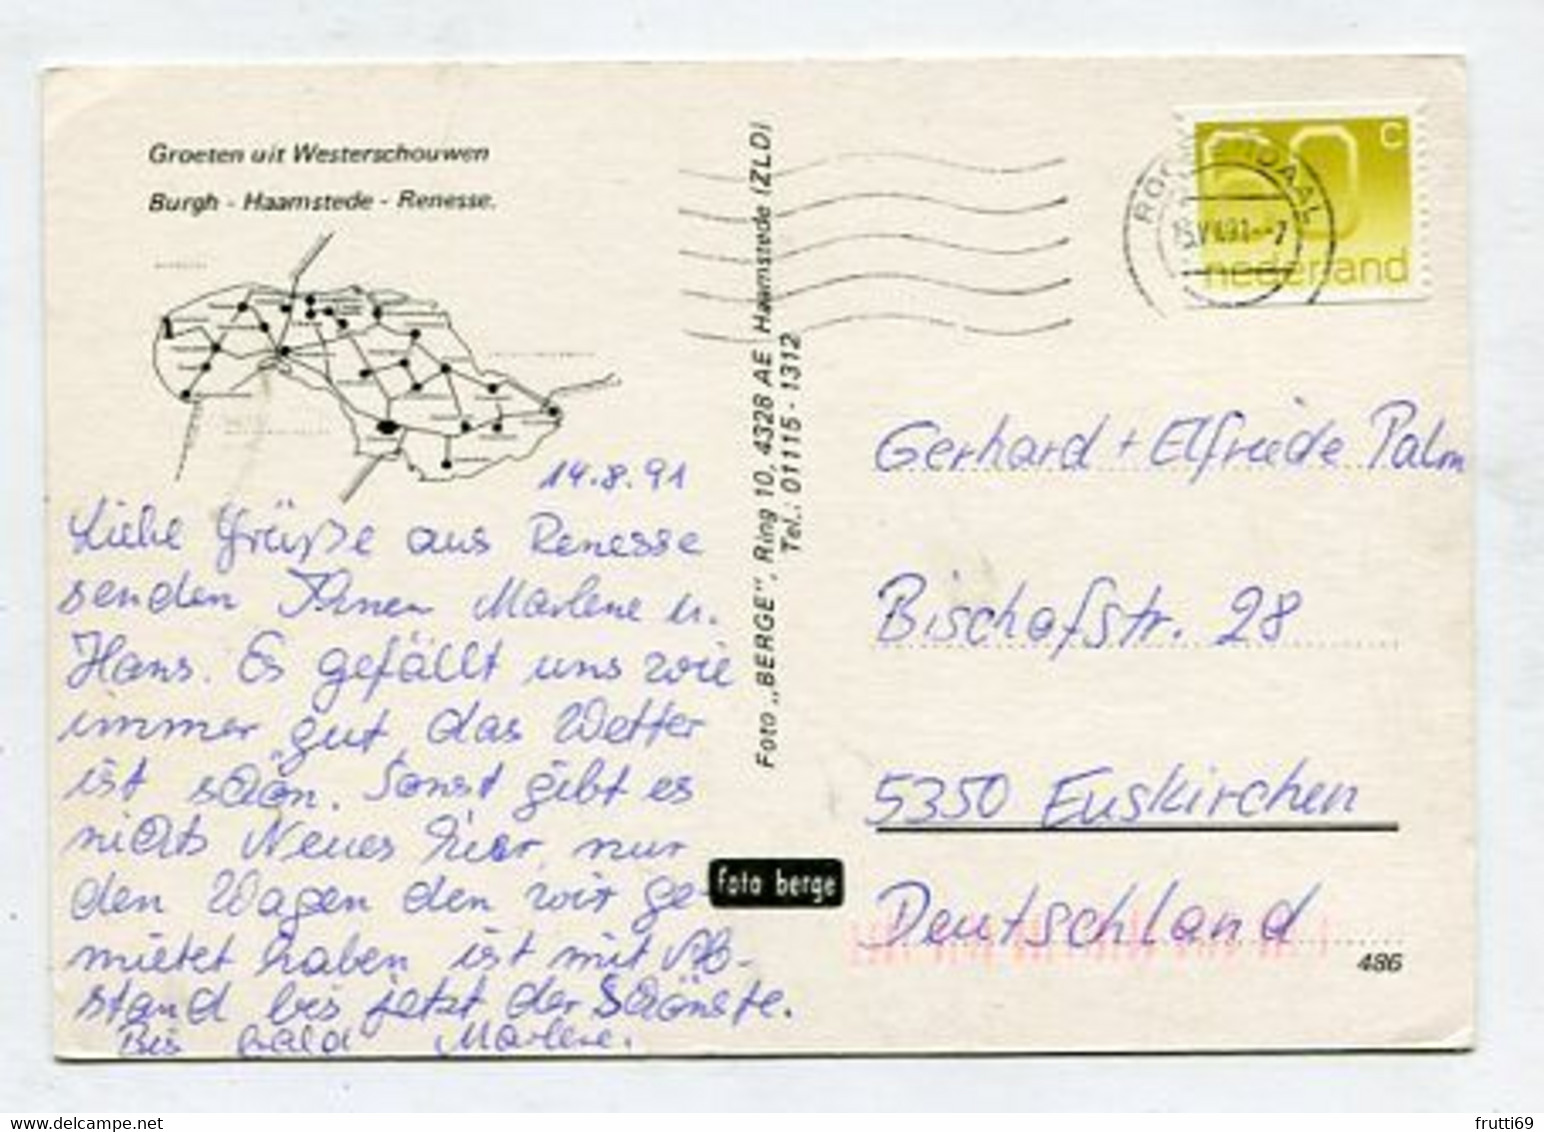 Groeten uit Westerschouwen
Burgh - Haamstede - Renesse.
14.8.91
Liebe Grüße aus Renesse
senden Ihnen Marlene u.
Hans. Es gefällt uns wie
immer gut, das Wetter
ist schön. Sonst gibt es
nichts Neues hier, nur
den Wagen den wir ge-
mietet haben ist mit Ab-
stand bis jetzt der Schönste.
Bis bald Marlene.
Foto „BERGE", Ring 10, 4328 AE Haamstede (ZLD)
Tel.: 01115 - 1312
foto berge
60 c
nederland
Gerhard + Elfriede Palm
Bischofstr. 28
5350 Euskirchen
Deutschland
486
frutti69